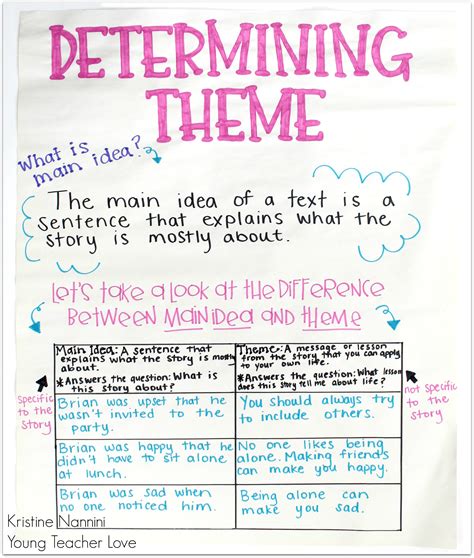 DETERMINING
THEME
What is
main idea?
The main idea of a text is a
sentence that explains what the
story is mostly about.
Let's take a look at the difference
between main idea and theme
Main Idea: A sentence that
explains what the story is mostly
about.
*Answers the question: What is
this story about?
Theme: A message or lesson
from the story that you can apply
to your own life.
*Answers the question: What lesson
does this story tell me about life?
specific
to the
story
not specific
to the
story
Brian was upset that he
wasn't invited to the
party.
You should always try
to include others.
Brian was happy that he
didn't have to sit alone
at lunch.
No one likes being
alone. Making friends
can make you happy.
Brian was sad when
no one noticed him.
Being alone can
make you sad.
Kristine Nannini
Young Teacher Love